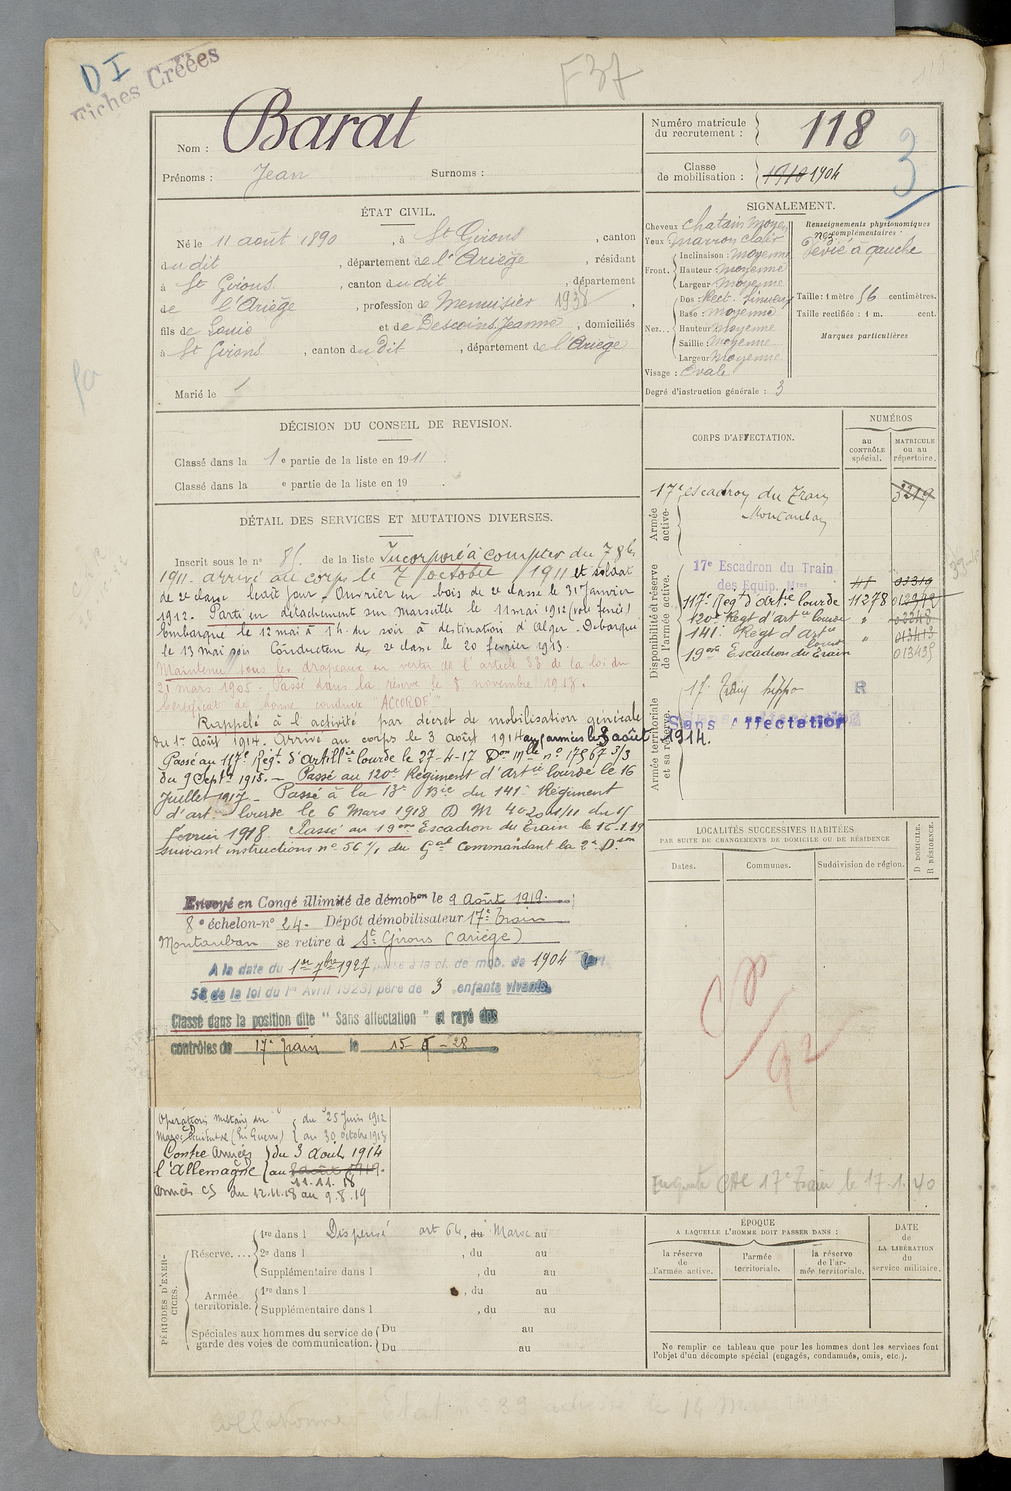 D I
Fiches Créées
F37
Nom : Barat
Prénoms : Jean Surnoms :
Numéro matricule
du recrutement : 118
Classe
de mobilisation : 1910 1904
3
ÉTAT CIVIL.
Né le 11 août 1890, à St Girons, canton
du dit, département de l'Ariège, résidant
à St Girons, canton du dit, département
de l'Ariège, profession de Menuisier 1938,
fils de Louis et de Descoins Jeanne, domiciliés
à St Girons, canton du dit, département de l'Ariège
Marié le
SIGNALEMENT.
Cheveux chatain moyen
Yeux marron clair
Front. Inclinaison : moyenne
Hauteur : moyenne
Largeur : moyenne
Nez... Dos : Rect. sinueux
Base : moyenne
Hauteur : moyenne
Saillie : moyenne
Largeur : moyenne
Visage : Ovale
Degré d'instruction générale : 3
Renseignements physionomiques
complémentaires :
nez
Dévié à gauche
Taille : 1 mètre 56 centimètres.
Taille rectifiée : 1 m. cent.
Marques particulières
DÉCISION DU CONSEIL DE REVISION.
Classé dans la 1e partie de la liste en 1911.
Classé dans la e partie de la liste en 19 .
DÉTAIL DES SERVICES ET MUTATIONS DIVERSES.
Inscrit sous le n° 81. de la liste Incorporé à compter du 7 8bre
1911. arrivé au corps le 7 octobre 1911 et soldat
de 2e classe ledit jour. Ouvrier en bois de 2e classe le 31 Janvier
1912. Parti en détachement sur Marseille le 11 mai 1912 (voie ferrée)
Embarqué le 12 mai à 1 h. du soir à destination d'Alger. Débarqué
le 13 mai soir Conducteur de 2e classe le 20 février 1913.
Maintenu sous les drapeaux en vertu de l'article 33 de la loi du
21 mars 1905. Passé dans la réserve le 8 novembre 1913.
Certificat de bonne conduite "ACCORDÉ"
Rappelé à l'activité par décret de mobilisation générale
du 1er août 1914. Arrivé au corps le 3 août 1914 aux armées le 8 août 1914.
Passé au 117e Régt d'Artillie lourde le 27-4-17 Don Mlle n° 17567 5/3
du 9 Septre 1915. — Passé au 120e Régiment d'Artie lourde le 16
Juillet 1917. Passé à la 13e Bie du 141e Régiment
d'art. lourde le 6 Mars 1918 D M 4020 1/11 du 15
février 1918. Classé au 19ème Escadron du Train le 16.1.19
suivant instructions n° 56 1/1 du Gal Commandant la 2e Don
Envoyé en Congé illimité de démobon le 9 Août 1919.
8e échelon-n° 24. Dépôt démobilisateur 17e train
Montauban se retire à St Girons (Ariège)
A la date du 1er 7bre 1927 passé à la cl. de mob. de 1904 (art.
58 de la loi du 1er Avril 1923) père de 3 enfants vivants.
Classé dans la position dite "Sans affectation" et rayé des
contrôles de 17e train le 15-5-28
Opérations militaires au
Maroc Occidental (En Guerre) du 25 Juin 1912
au 30 octobre 1913
Contre l'Allemagne Armées du 3 Août 1914
au 8 août 1919.
11.11.18
armées CS du 12.11.18 au 9.8.19
CORPS D'AFFECTATION.
NUMÉROS
au
CONTRÔLE
spécial.
MATRICULE
ou au
répertoire.
Armée
active.
17e escadron du Train 03219
Montauban
Disponibilité et réserve
de l'armée active.
17e Escadron du Train
des Equip. Mres
117e Régt d'artie lourde 11278
120e Régt d'artie lourde "
141e Régt d'artie lourde "
19ème Escadron du Train 013435
Armée territoriale
et sa réserve.
17e Train hippo R
Sans Affectation
LOCALITÉS SUCCESSIVES HABITÉES
PAR SUITE DE CHANGEMENTS DE DOMICILE OU DE RÉSIDENCE
Dates. Communes. Subdivision de région.
D DOMICILE.
R RÉSIDENCE.
92
17e Train le 17.1.40
PÉRIODES D'EXERCICES.
Réserve.... 1re dans l Dispensé art 64, du Maroc au
2e dans l , du au
Supplémentaire dans l , du au
Armée
territoriale. 1re dans l , du au
Supplémentaire dans l , du au
Spéciales aux hommes du service de
garde des voies de communication. Du au
Du au
ÉPOQUE
A LAQUELLE L'HOMME DOIT PASSER DANS :
la réserve
de
l'armée active.
l'armée
territoriale.
la réserve
de l'ar-
mée territoriale.
DATE
de
LA LIBÉRATION
du
service militaire.
Ne remplir ce tableau que pour les hommes dont les services font
l'objet d'un décompte spécial (engagés, condamnés, omis, etc.).